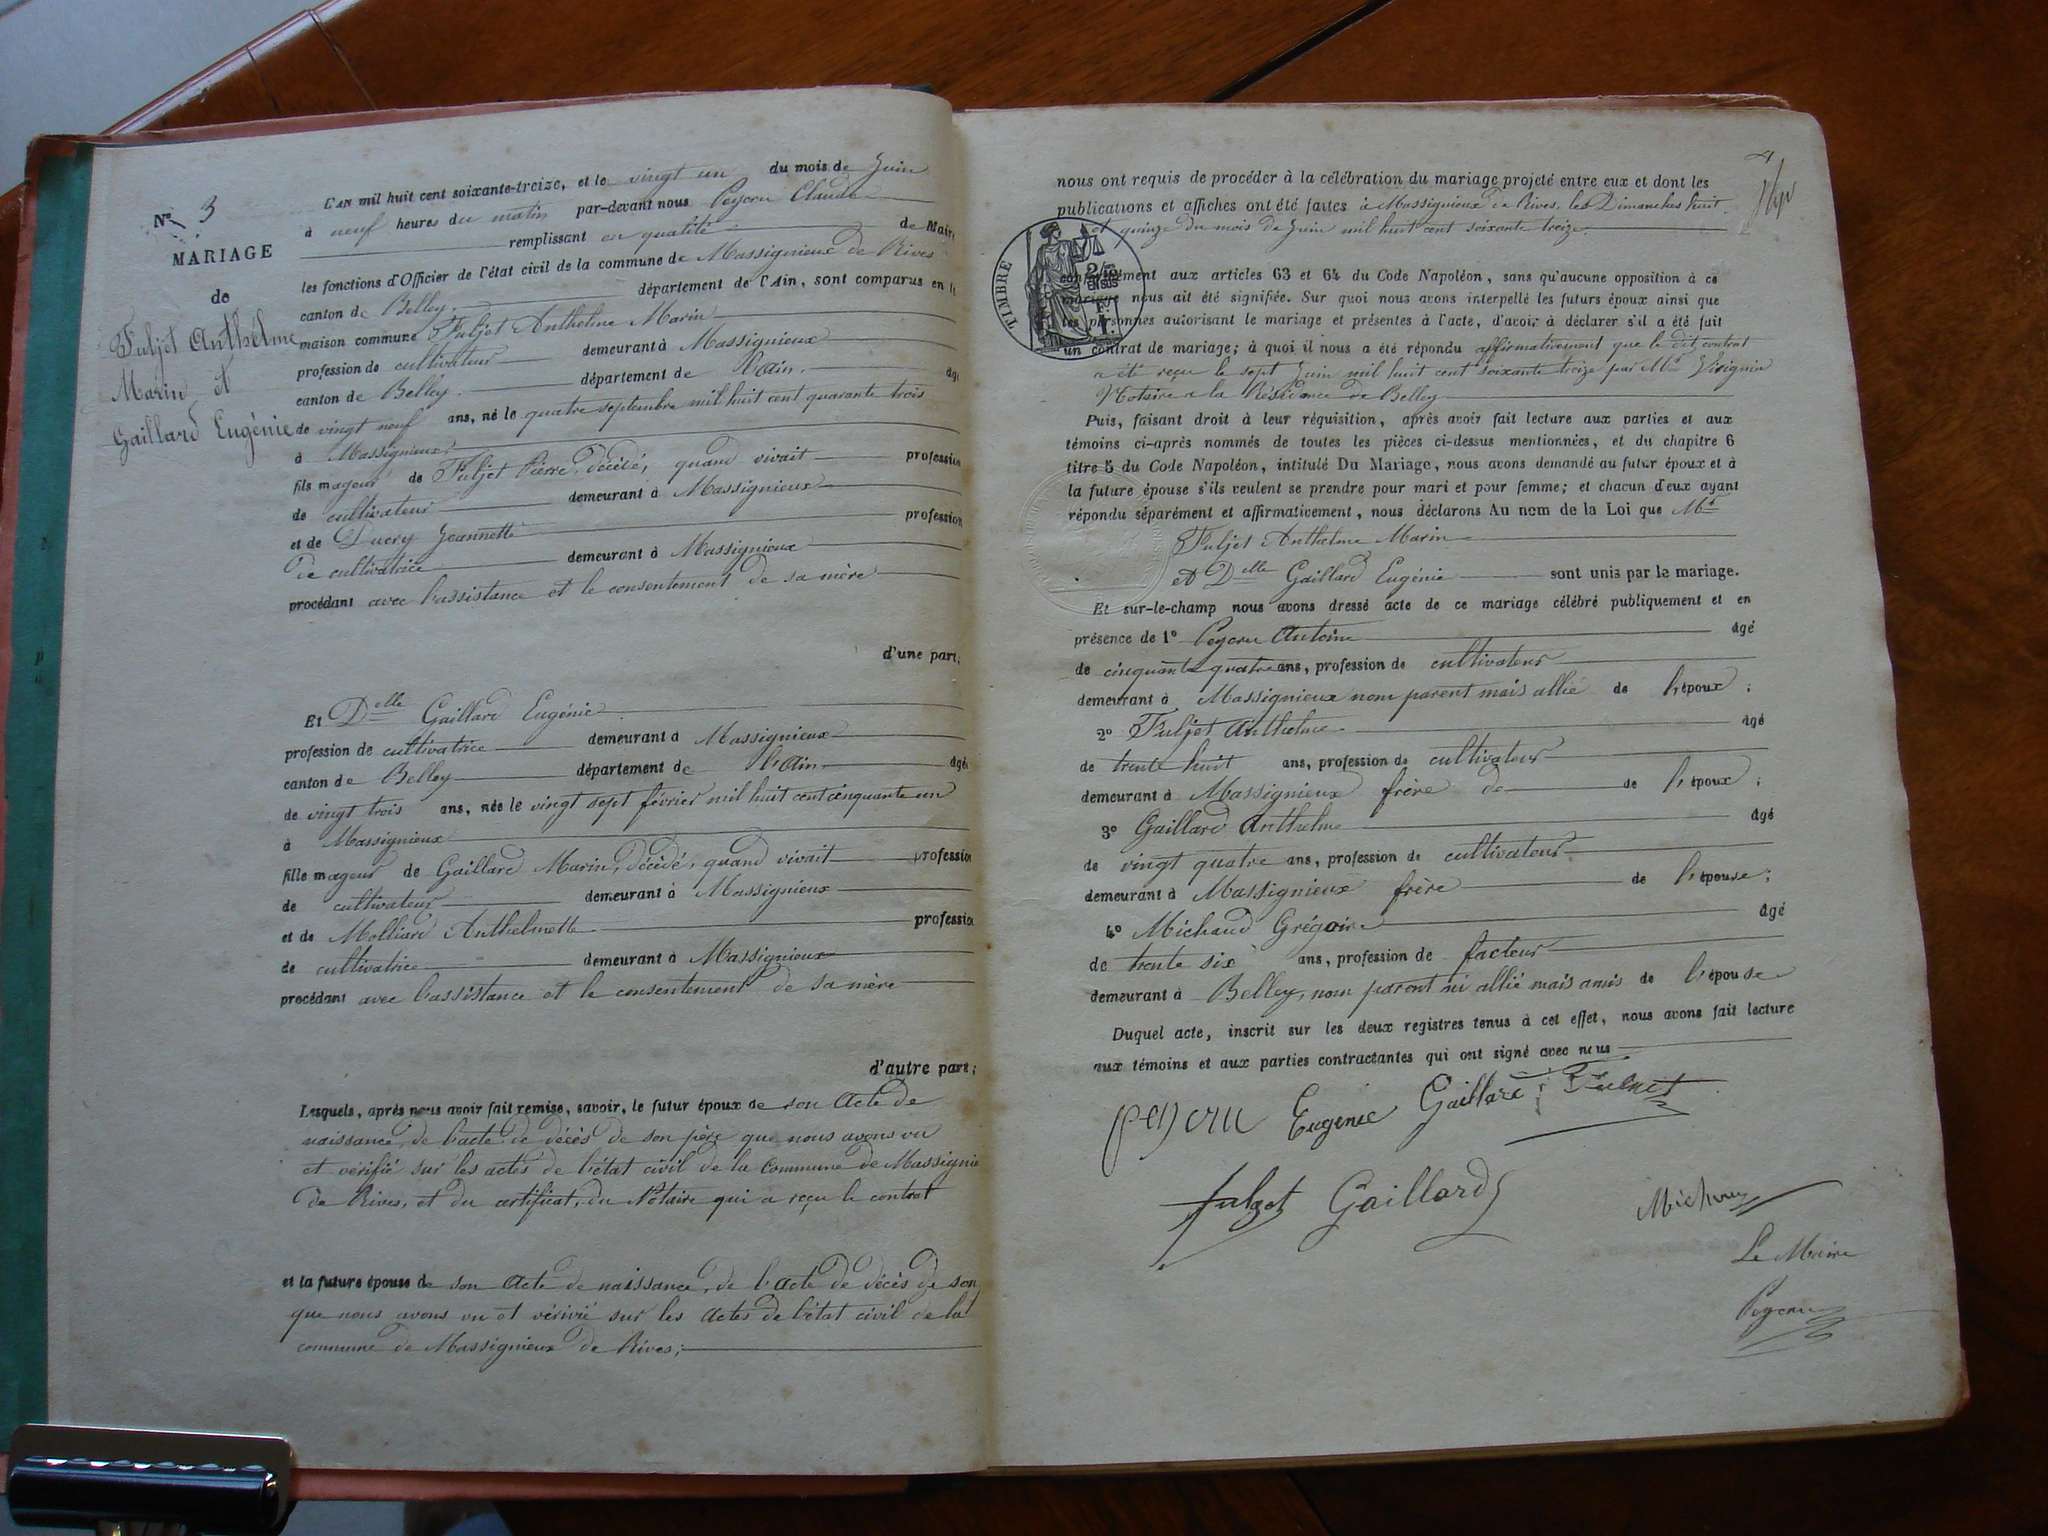 N° 3
MARIAGE
de
Fuljet Anthelme
Marin et
Gaillard Eugénie
L'an mil huit cent soixante-treize, et le vingt un du mois de Juin
à neuf heures du matin par-devant nous Peycru Claude
remplissant en qualité de Maire
les fonctions d'Officier de l'état civil de la commune de Massignieux de Rives
canton de Belley, département de l'Ain, sont comparus en la
maison commune Fuljet Anthelme Marin
profession de cultivateur demeurant à Massignieux
canton de Belley département de l'Ain. âgé
de vingt neuf ans, né le quatre septembre mil huit cent quarante trois
à Massignieux
fils mageur de Fuljet Pierre, décédé, quand vivait profession
de cultivateur demeurant à Massignieux
et de Ducry Jeannette profession
de cultivatrice demeurant à Massignieux
procédant avec l'assistance et le consentement de sa mère
d'une part;
Et Delle Gaillard Eugénie
profession de cultivatrice demeurant à Massignieux
canton de Belley département de l'Ain âgé
de vingt trois ans, née le vingt sept février mil huit cent cinquante un
à Massignieux
fille mageur de Gaillard Marin, décédé, quand vivait profession
de cultivateur demeurant à Massignieux
et de Molliard Anthelmette profession
de cultivatrice demeurant à Massignieux
procédant avec l'assistance et le consentement de sa mère
d'autre part;
Lesquels, après nous avoir fait remise, savoir, le futur époux de son acte de
naissance, de l'acte de décès de son père que nous avons vu
et vérifié sur les actes de l'état civil de la Commune de Massignie
de Rives, et du certificat du Notaire qui a reçu le contrat
et la future épouse de son acte de naissance, de l'acte de décès de son
que nous avons vu et vérivié sur les actes de l'état civil de la
commune de Massignieux de Rives;
4
nous ont requis de procéder à la célébration du mariage projeté entre eux et dont les
publications et affiches ont été faites à Massignieux de Rives, les Dimanches huit
et quinze du mois de Juin mil huit cent soixante treize.
TIMBRE
2/10
EN SUS
F.
1.
conformément aux articles 63 et 64 du Code Napoléon, sans qu'aucune opposition à ce
mariage nous ait été signifiée. Sur quoi nous avons interpellé les futurs époux ainsi que
les personnes autorisant le mariage et présentes à l'acte, d'avoir à déclarer s'il a été fait
un contrat de mariage; à quoi il nous a été répondu affirmativement que le dit contrat
a été reçu le sept Juin mil huit cent soixante treize par Mtre
Notaire a la Résidence de Belley
Puis, faisant droit à leur réquisition, après avoir fait lecture aux parties et aux
témoins ci-après nommés de toutes les pièces ci-dessus mentionnées, et du chapitre 6
titre 5 du Code Napoléon, intitulé Du Mariage, nous avons demandé au futur époux et à
la future épouse s'ils veulent se prendre pour mari et pour femme; et chacun d'eux ayant
répondu séparément et affirmativement, nous déclarons Au nom de la Loi que Mr
Fuljet Anthelme Marin
et Delle Gaillard Eugénie sont unis par le mariage.
Et sur-le-champ nous avons dressé acte de ce mariage célébré publiquement et en
présence de 1° Peycru Antoine âgé
de cinquante quatre ans, profession de cultivateur
demeurant à Massignieux nom parent mais allié de l'époux;
2° Fuljet Anthelme âgé
de trente huit ans, profession de cultivateur
demeurant à Massignieux frère de de l'époux;
3° Gaillard Anthelme âgé
de vingt quatre ans, profession de cultivateur
demeurant à Massignieux frère de l'épouse;
4° Michaud Grégoire âgé
de trente six ans, profession de facteur
demeurant à Belley, nom parent ni allié mais amis de l'épouse
Duquel acte, inscrit sur les deux registres tenus à cet effet, nous avons fait lecture
aux témoins et aux parties contractantes qui ont signé avec nous
Peycru Eugénie Gaillard Fuljet
fulget Gaillard
Michaud
Le Maire
Peycru